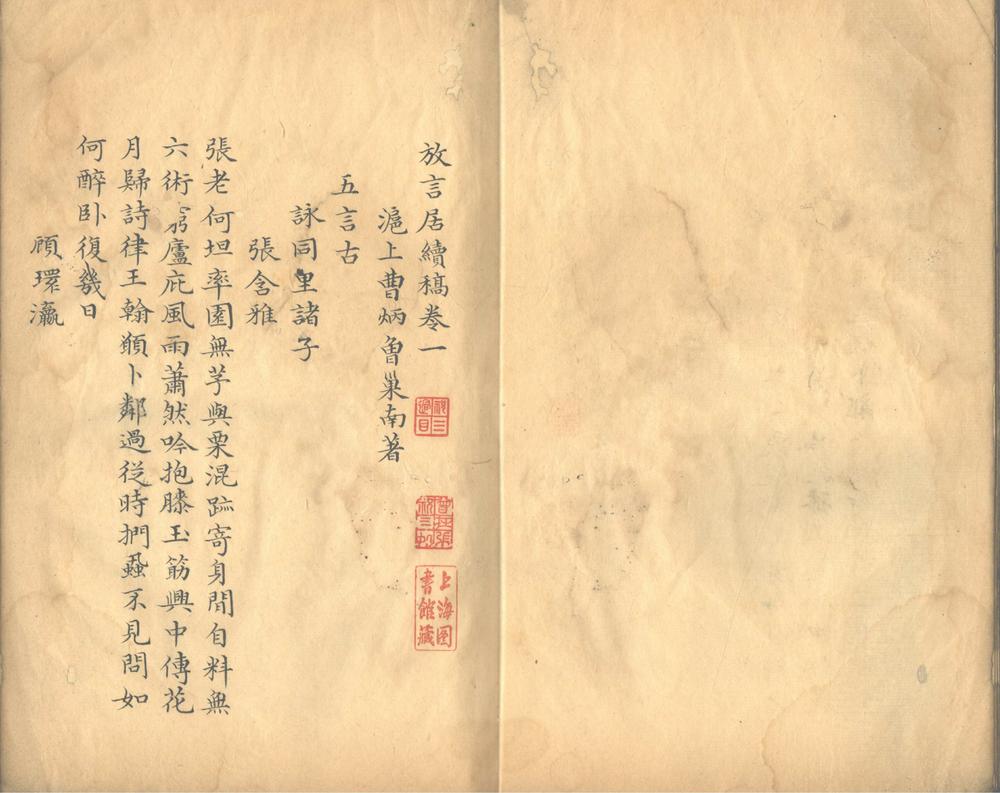 放言居續稿卷一
滬上曹炳曾巢南著
五言古
詠同里諸子
張含雅
張老何坦率園無芋與栗混跡寄身閒自料無
六術窮廬庇風雨蕭然吟抱膝玉筋興中傳花
月歸詩律王翰願卜鄰過從時捫蝨不見問如
何醉卧復幾日
顧環瀛
上海图
書館藏